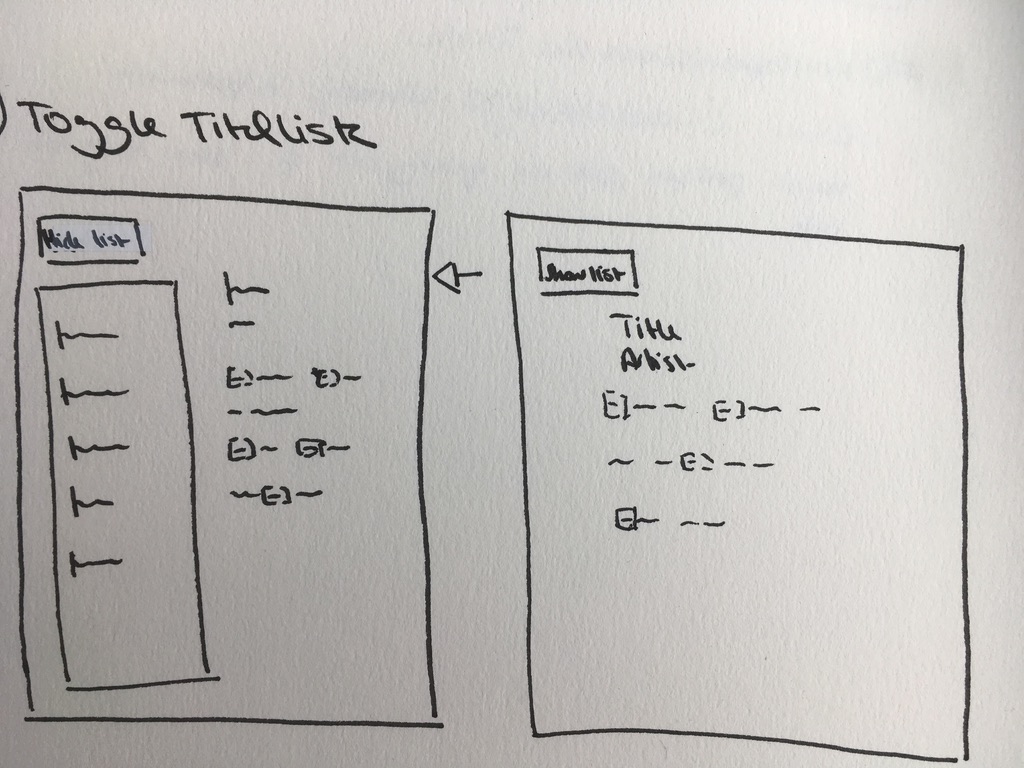 Toggle Titellist
Hide list
Show list
Title
Artist